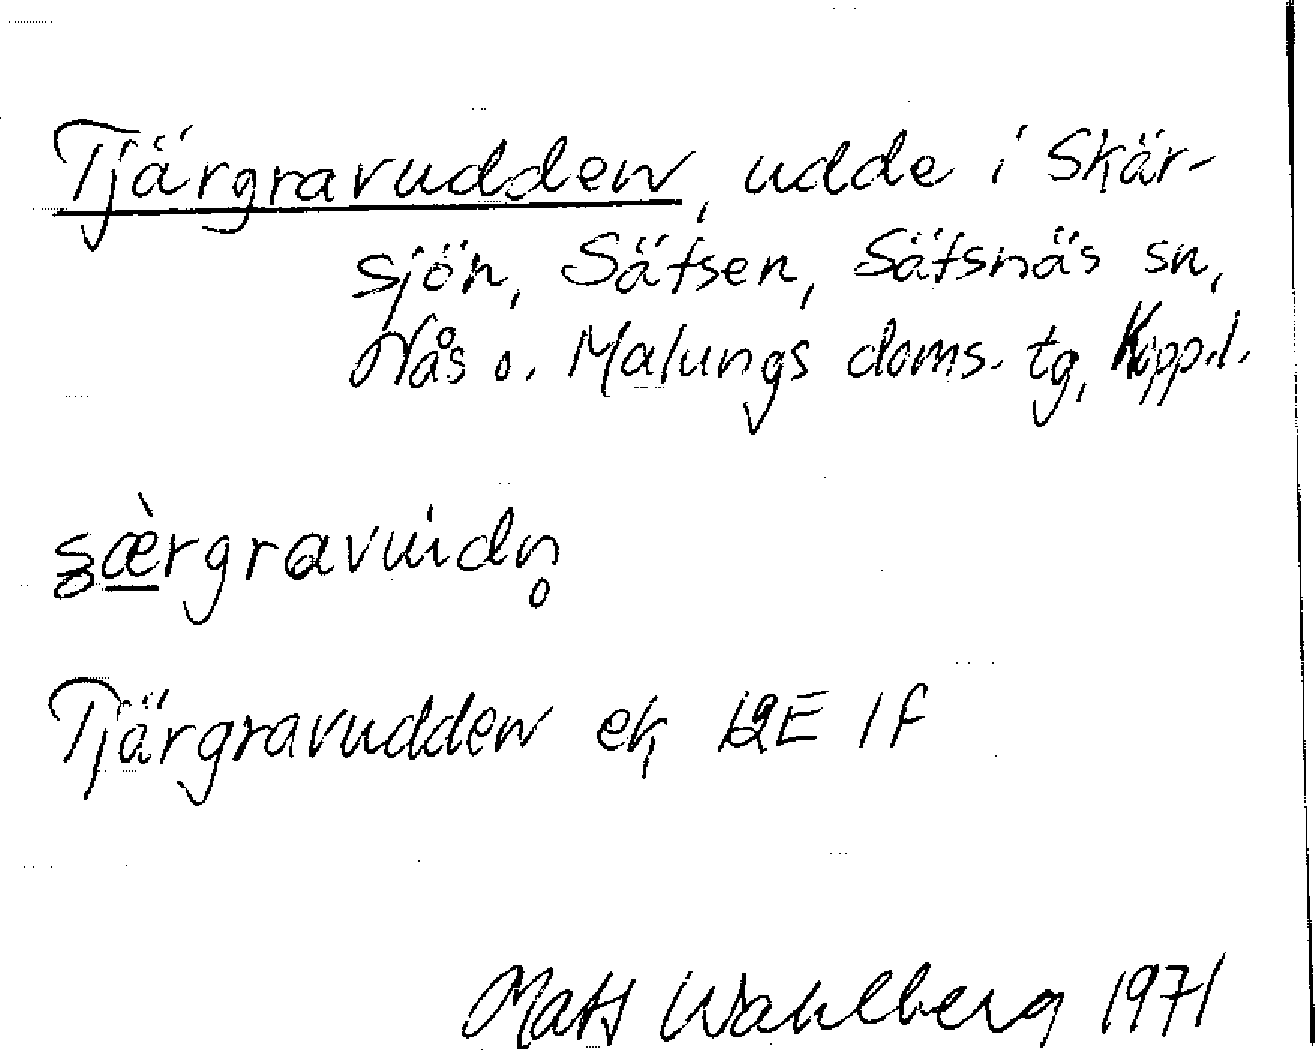 Tjärgravudden, udde i Skär-
sjön, Säfsen, Säfsnäs sn,
Nås o. Malungs doms. tg, Kopp.l.
Tjärgravudden ek 12E 1f
Mats Wahlberg 1971